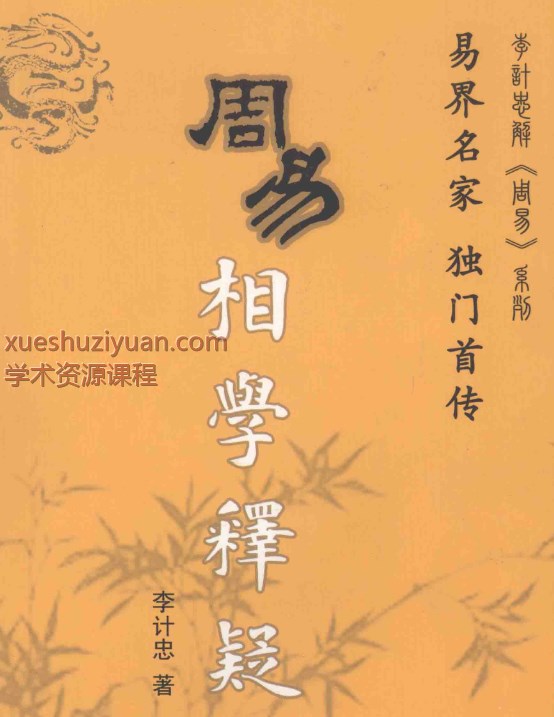 李計忠解《周易》系列
易界名家 独门首传
周易
相學釋疑
李计忠 著
xueshuziyuan.com
学术资源课程